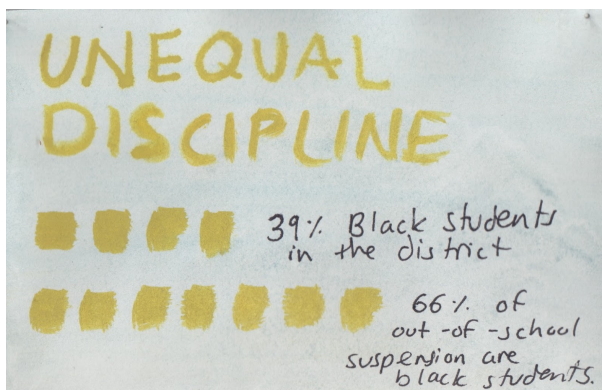 UNEQUAL
DISCIPLINE
39% Black students
in the district
66% of
out-of-school
suspension are
black students.